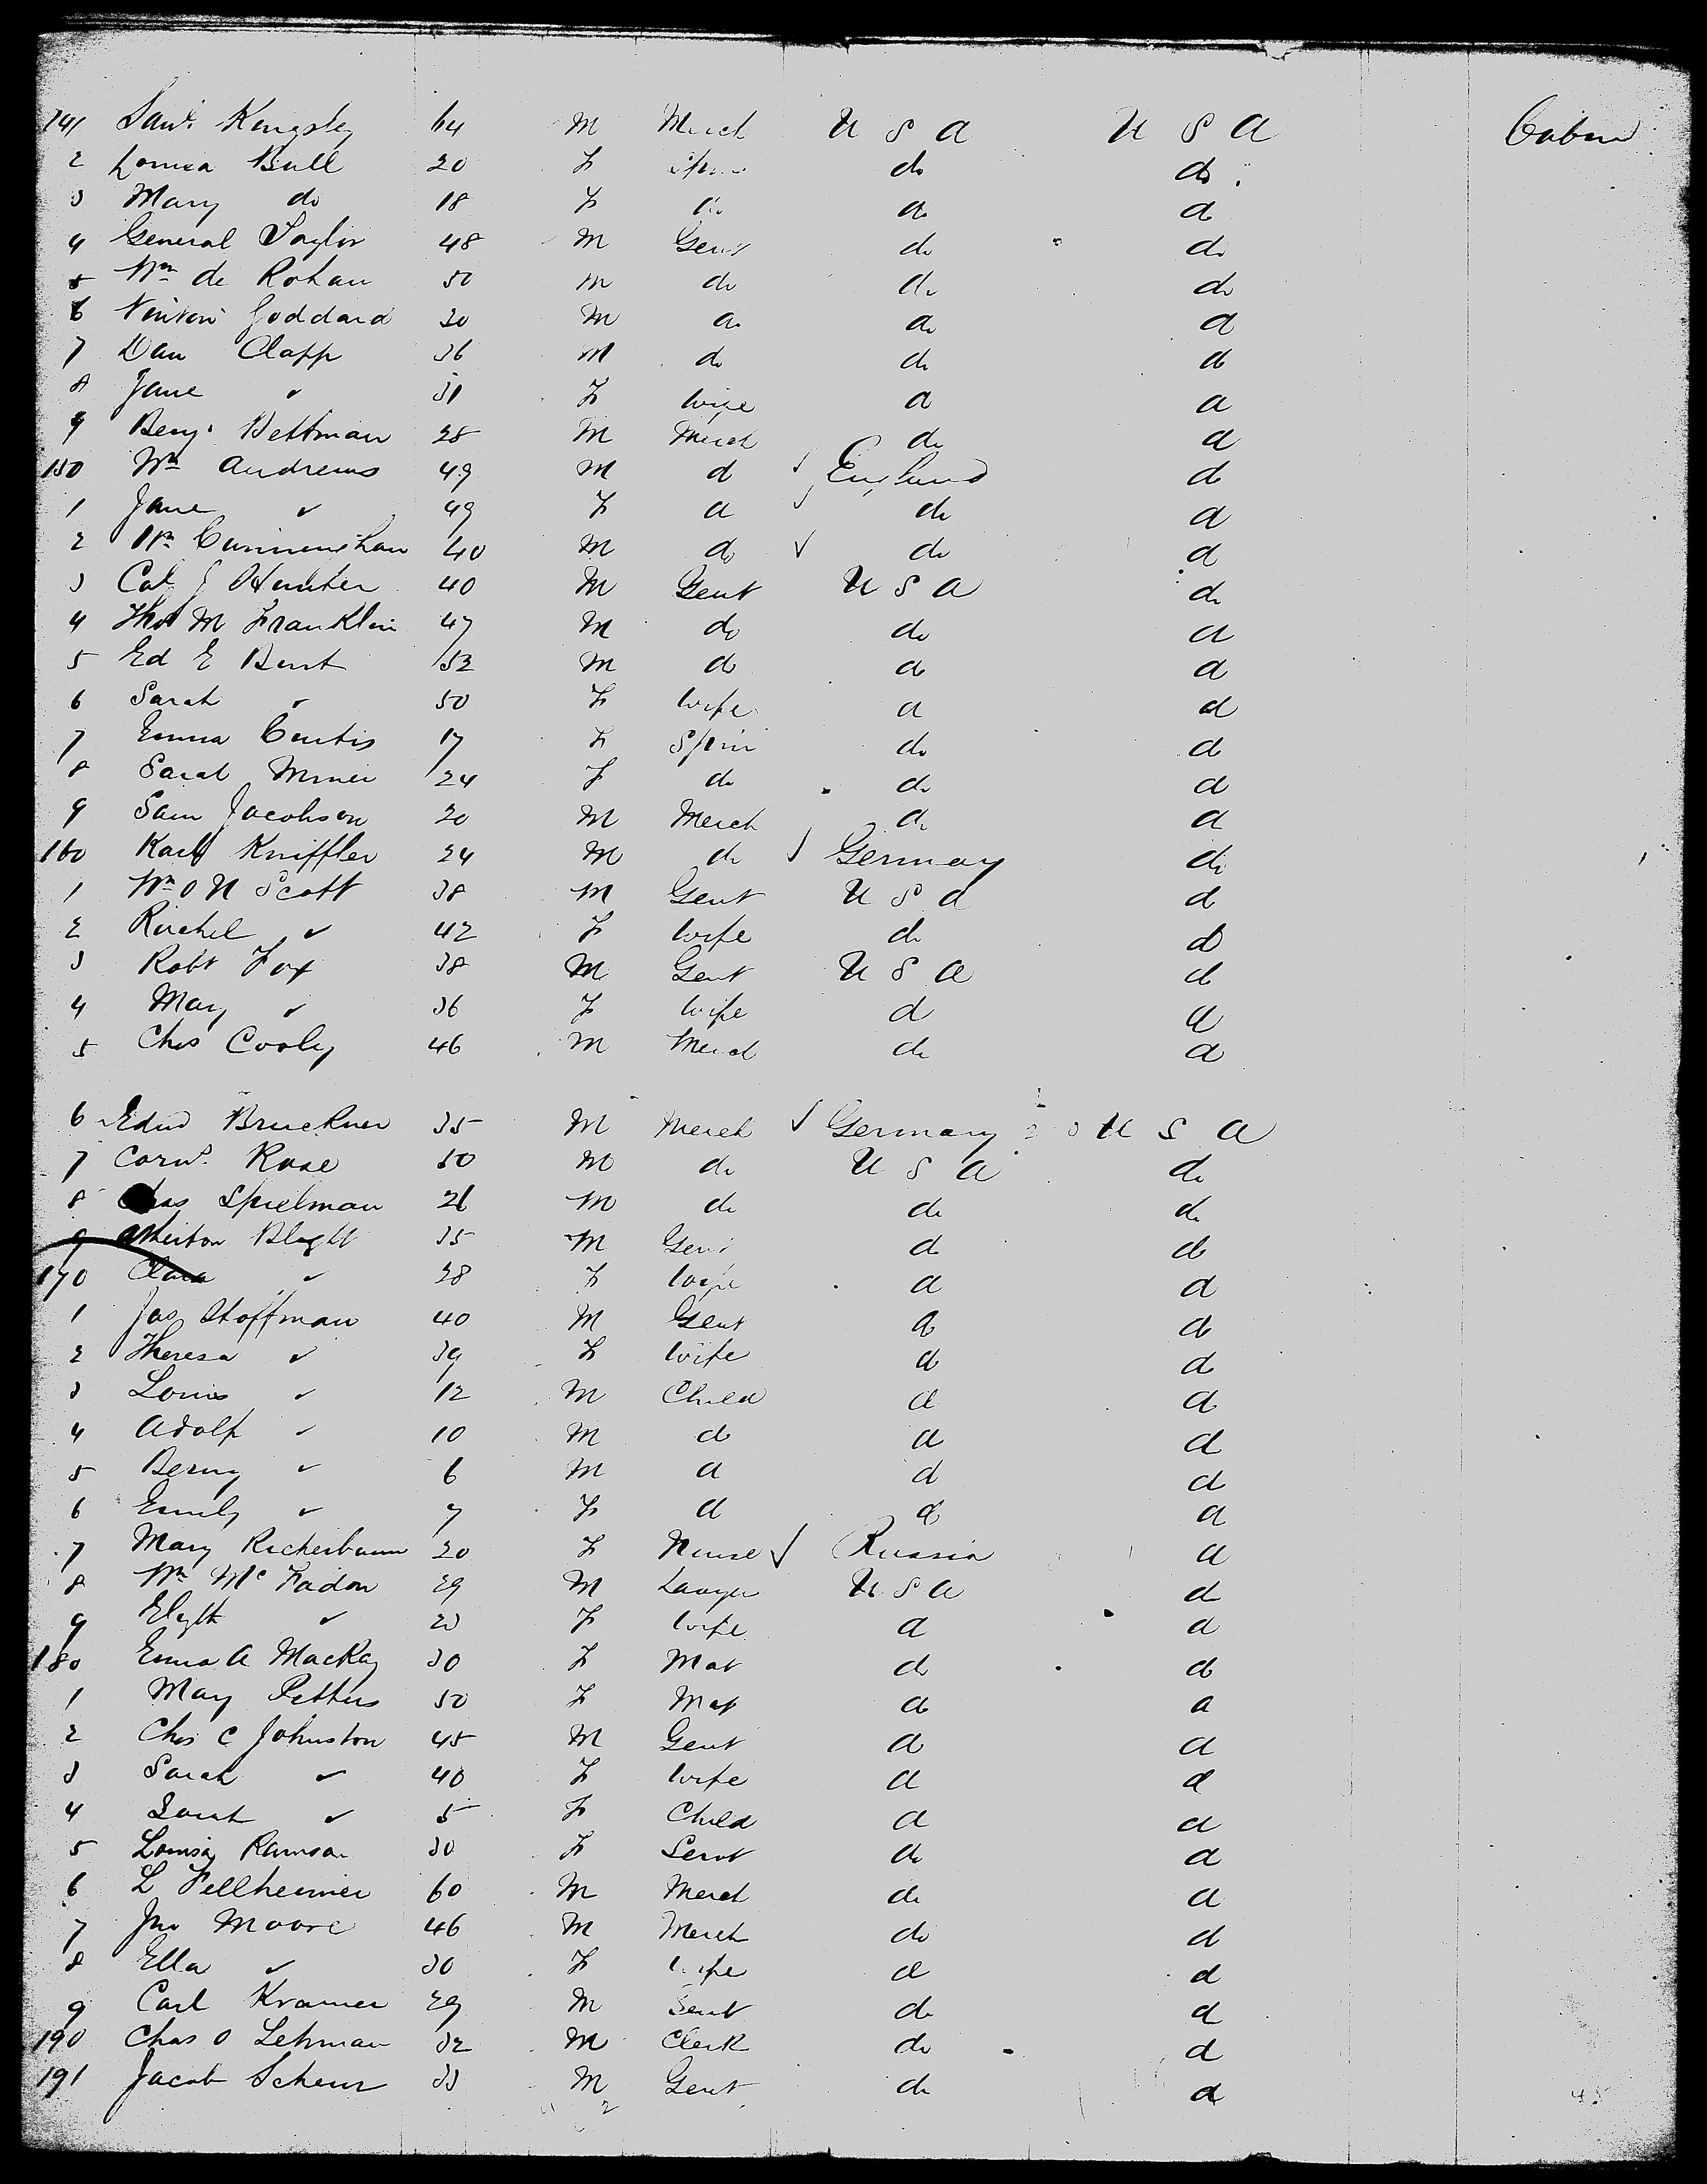 141 Saml. Kingsley 64 M Merch U S A U S A Cabin
2 Louisa Bull 20 F Spin do do
3 Mary do 18 F do do do
4 General Taylor 48 M Gent do do
5 Wm de Rohan 50 M do do do
6 Goddard 30 M do do do
7 Dan Clapp 36 M do do do
8 Jane " 31 F wife do do
9 Benj. Bettman 28 M Merch do do
150 Wm Andrews 49 M do ✓ England do
1 Jane " 49 F do ✓ do do
2 Wm Cunningham 40 M do ✓ do do
3 Col J Hunter 40 M Gent U S A do
4 Thos M Franklin 47 M do do do
5 Ed E Burt 52 M do do do
6 Sarah " 50 F wife do do
7 Emma Curtis 17 F Spin do do
8 Sarah Miner 24 F do do do
9 Sam Jacobson 20 M Merch do do
160 Karl Kniffler 24 M do ✓ Germany do
1 Wm O N Scott 38 M Gent U S A do
2 Rachel " 42 F wife do do
3 Robt Fox 38 M Gent U S A do
4 Mary " 36 F wife do do
5 Chas Cooley 46 M Merch do do
6 Edwd Bruckner 35 M Merch ✓ Germany U S A
7 Cornl. Rose 50 M do U S A do
8 Chas Spielman 26 M do do do
9 Atherton Blight 35 M Gent do do
170 Clara " 28 F wife do do
1 Jas Hoffman 40 M Gent do do
2 Theresa " 39 F wife do do
3 Louis " 12 M Child do do
4 Adolf " 10 M do do do
5 Berny " 6 M do do do
6 Emily " 7 F do do do
7 Mary Rickerbaum 20 F Nurse ✓ Russia do
8 Wm Mc Fadon 29 M Lawyer U S A do
9 " 23 F wife do do
180 Emma A Mackay 30 F Mat do do
1 May Petters 50 F Mat do do
2 Chas C Johnston 45 M Gent do do
3 Sarah " 40 F wife do do
4 Sarah " 5 F Child do do
5 Louisa Ramson 30 F Servt do do
6 L Fellheimer 60 M Merch do do
7 Jno Moore 46 M Merch do do
8 Ella " 30 F wife do do
9 Carl Kramer 29 M Gent do do
190 Chas O Lehman 32 M Clerk do do
191 Jacob Scheur 33 M Gent do do